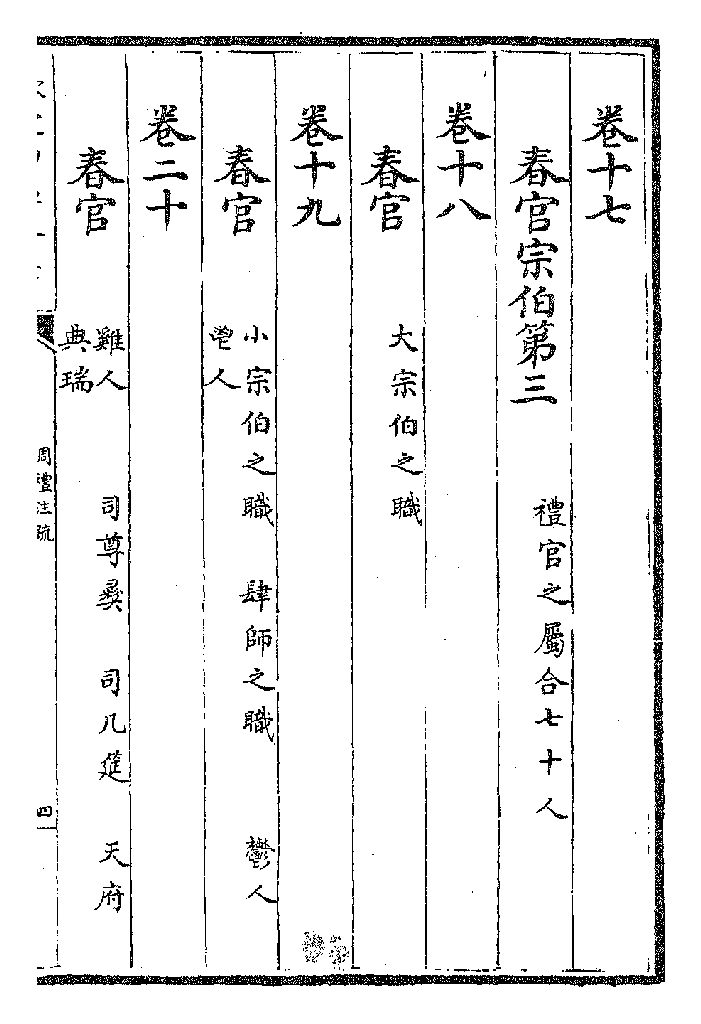 卷十七
春官宗伯第三 禮官之屬合七十人
卷十八
春官 大宗伯之職
卷十九
春官 小宗伯之職 肆師之職 鬱人
鬯人
卷二十
春官 雞人 司尊彜 司几筵 天府
典瑞
周禮注疏
四